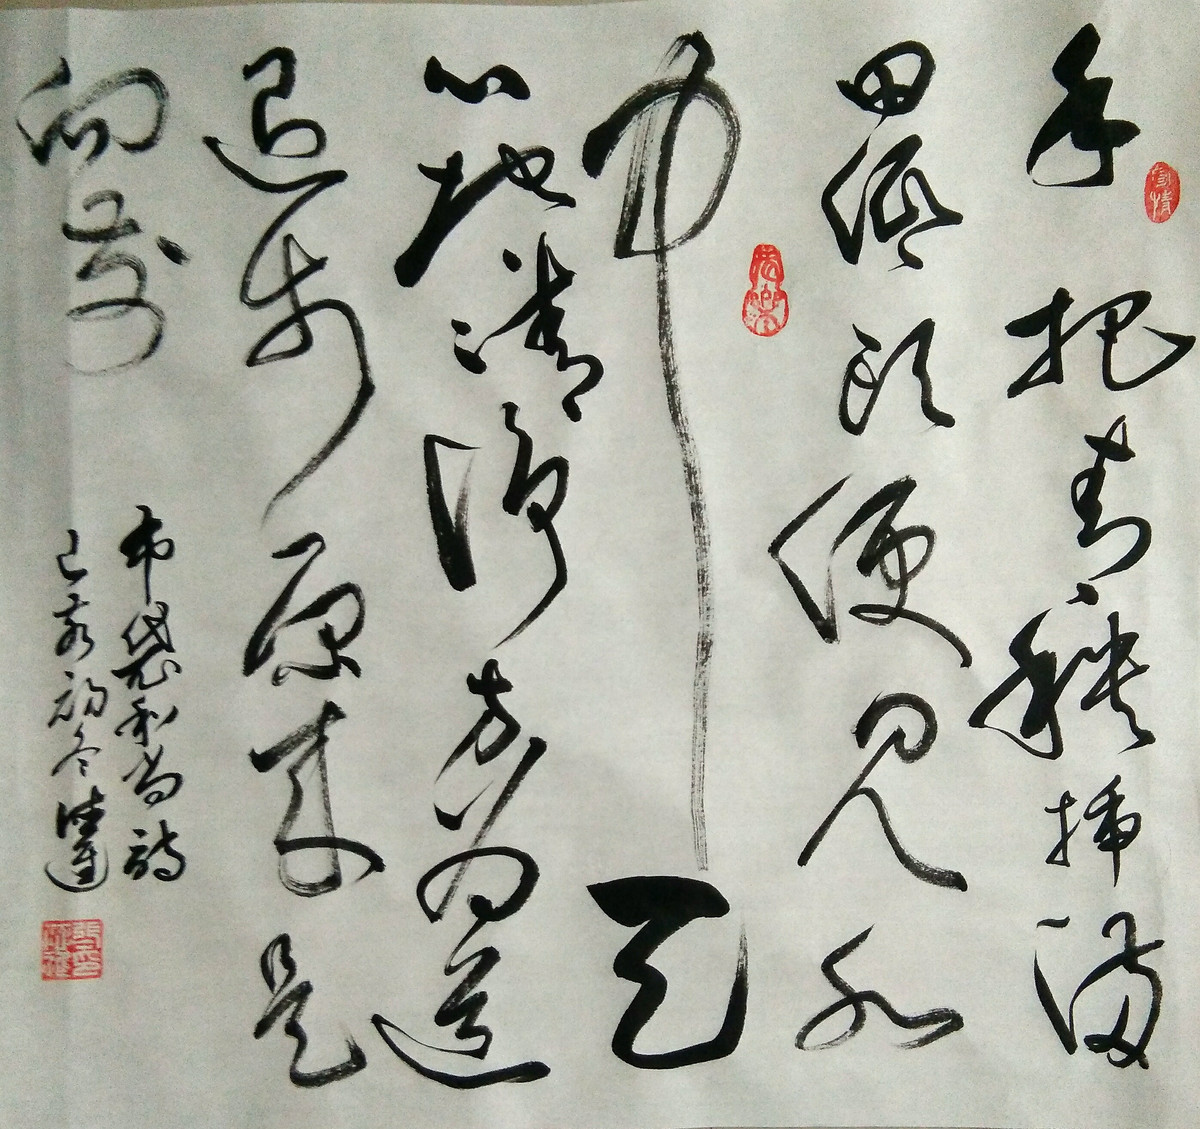 手把青秧插满
田低头便见水
中天
心地清净方为道
退步原来是
向前
布袋和尚诗
己亥初冬